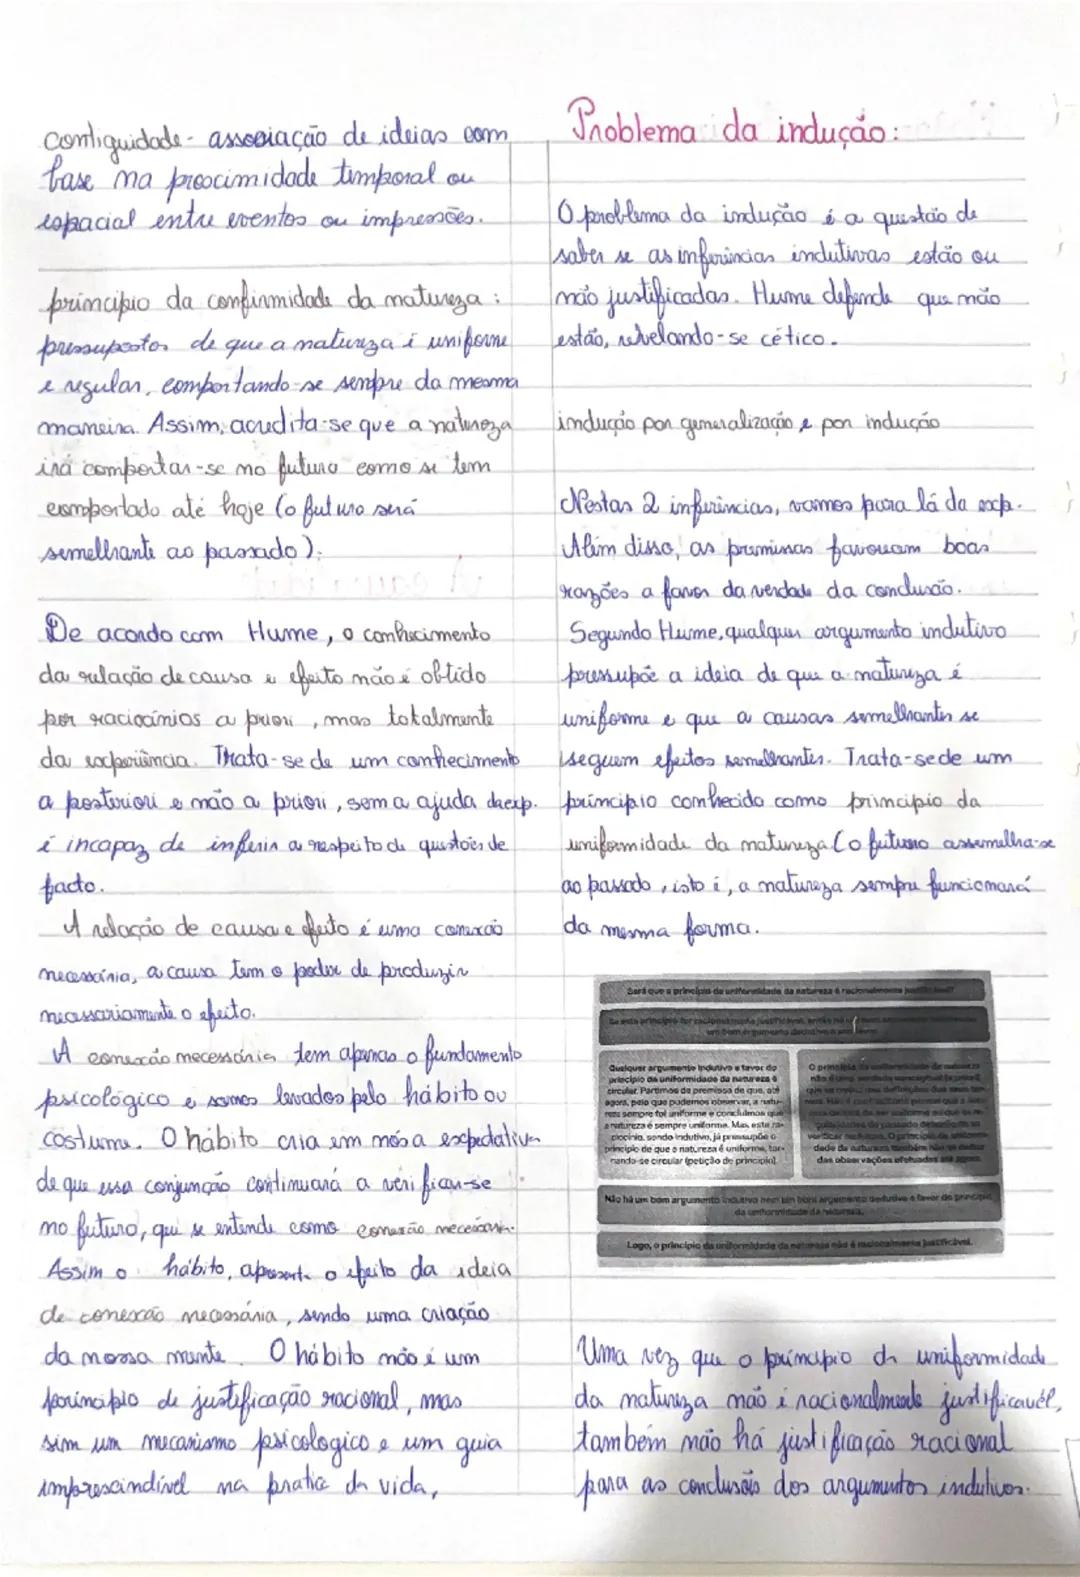 contiguidade - associação de ideias com
base na proximidade temporal ou
espacial entre eventos ou impressões.
princípio da confirmidade da natureza :
pressupostos de que a natureza é uniforme
e regular, comportando-se sempre da mesma
maneira. Assim, acredita-se que a natureza
irá comportar-se no futuro como se tem
comportado até hoje (o futuro será
semelhante ao passado).
De acordo com Hume, o conhecimento
da relação de causa e efeito não é obtido
por raciocínios a priori, mas totalmente
da experiência. Trata-se de um conhecimento
a posteriori e não a priori, sem a ajuda da exp.
é incapaz de inferir a respeito de questões de
facto.
A relação de causa e efeito é uma conexão
necessária, a causa tem o poder de produzir
necessariamente o efeito.
A conexão necessária tem apenas o fundamento
psicológico e somos levados pelo hábito ou
costume. O hábito cria em nós a expectativa
de que essa conjunção continuará a verificar-se
no futuro, que se entende como conexão necessária.
Assim o hábito, apresenta o efeito da ideia
de conexão necessária, sendo uma criação
da nossa mente. O hábito não é um
princípio de justificação racional, mas
sim um mecanismo psicologico e um guia
imprescindível na pratica da vida,
Problema da indução:
O problema da indução é a questão de
saber se as inferências indutivas estão ou
não justificadas. Hume defende que não
estão, revelando-se cético.
indução por generalização e por indução
Nestas 2 inferências, vamos para lá da exp.
Além disso, as premissas favouam boas
razões a favor da verdade da conclusão.
Segundo Hume, qualquer argumento indutivo
pressupõe a ideia de que a natureza é
uniforme e que a causas semelhantes se
seguem efeitos semelhantes. Trata-se de um
princípio conhecido como princípio da
uniformidade da natureza (o futuro assemelha-se
ao passado, isto é, a natureza sempre funcionará
da mesma forma.
Será que o princípio da uniformidade da natureza é racionalmente justificável?
Se este princípio for racionalmente justificável, então há
um bom argumento dedutivo a seu favor.
Qualquer argumento indutivo a favor do
princípio da uniformidade da natureza é
circular. Partimos da premissa de que, até
agora, pelo que pudemos observar, a natu-
reza sempre foi uniforme e concluímos que
a natureza é sempre uniforme. Mas, este ra-
ciocínio, sendo indutivo, já pressupõe o
princípio de que a natureza é uniforme, tor-
nando-se circular (petição de princípio).
O princípio da uniformidade da natureza
não é uma verdade conceptual
verificar no futuro. O princípio da uniformi-
dade da natureza também não se deduz
das observações efetuadas até agora.
Não há um bom argumento indutivo nem um bom argumento dedutivo a favor do princípio
da uniformidade da natureza.
Logo, o princípio da uniformidade da natureza não é racionalmente justificável.
Uma vez que o princípio da uniformidade
da natureza não é racionalmente justificável,
também não há justificação racional
para as conclusões dos argumentos indutivos.